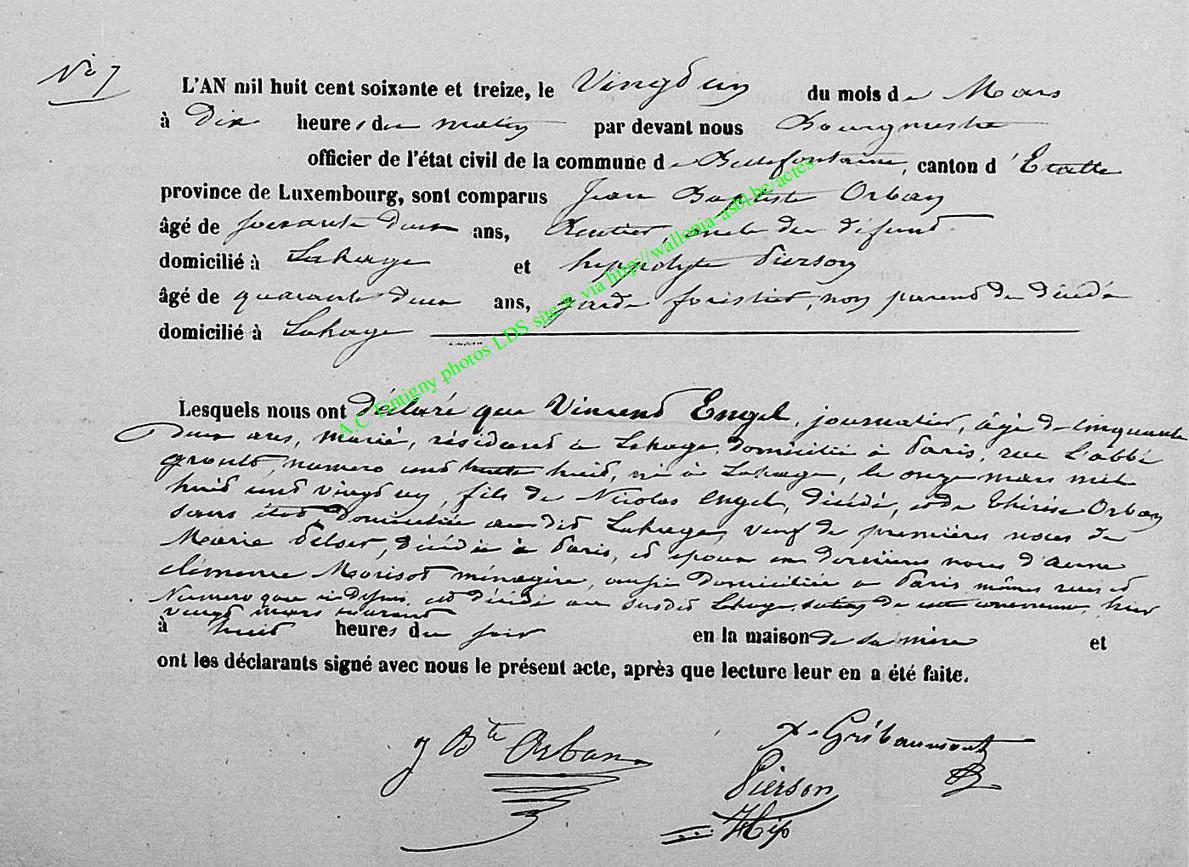 No 7
L'AN mil huit cent soixante et treize, le Vingt un du mois de Mars
à Dix heures du matin par devant nous Bourgmestre
officier de l'état civil de la commune de Bellefontaine, canton d'Etalle
province de Luxembourg, sont comparus Jean Baptiste Orban
âgé de soixante deux ans, Rentier, oncle du défunt
domicilié à Lahage et hyppolyte Pierson
âgé de quarante deux ans, garde forestier, non parent du décédé
domicilié à Lahage
Lesquels nous ont déclaré que Vincent Engel, journalier, âgé de cinquante
deux ans, marié, résidant à Lahage, domicilié à Paris, rue l'abbé
groult, numero cent huit, né à Lahage, le onze mars mil
huit cent vingt un, fils de Nicolas Engel, décédé, et de Thérèse Orban
sans état domiciliée au dit Lahage, veuf de premières noces de
Marie, décédée à Paris, et époux en dernières noces d'Anne
clémence Morisot ménagère, aussi domiciliée à Paris même rue et
Numero que ci dessus, est décédé au susdit Lahage, de cette commune, hier
vingt mars courant
à huit heures du soir en la maison de sa mère et
ont les déclarants signé avec nous le présent acte, après que lecture leur en a été faite.
J Bte Orban
x. Gribaumont
Pierson
Hip
A.C Tintigny photos LDS site @ via http://wallonia-asbl.be/actes